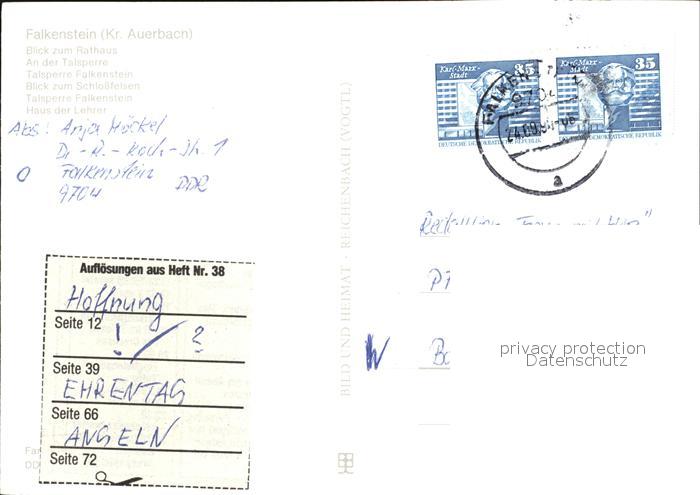 Falkenstein (Kr. Auerbach)
Blick zum Rathaus
An der Talsperre
Talsperre Falkenstein
Blick zum Schloßfelsen
Talsperre Falkenstein
Haus der Lehrer
Abs: Anja Höckel
Dr.-R.-Koch-Str. 1
Falkenstein
9704 DDR
Karl-Marx-Stadt 35
DEUTSCHE DEMOKRATISCHE REPUBLIK
Karl-Marx-Stadt 35
DEUTSCHE DEMOKRATISCHE REPUBLIK
9704
a
BILD UND HEIMAT · REICHENBACH (VOGTL)
W
privacy protection
Datenschutz
Auflösungen aus Heft Nr. 38
Hoffnung
Seite 12
! ?
Seite 39
EHRENTAG
Seite 66
ANGELN
Seite 72